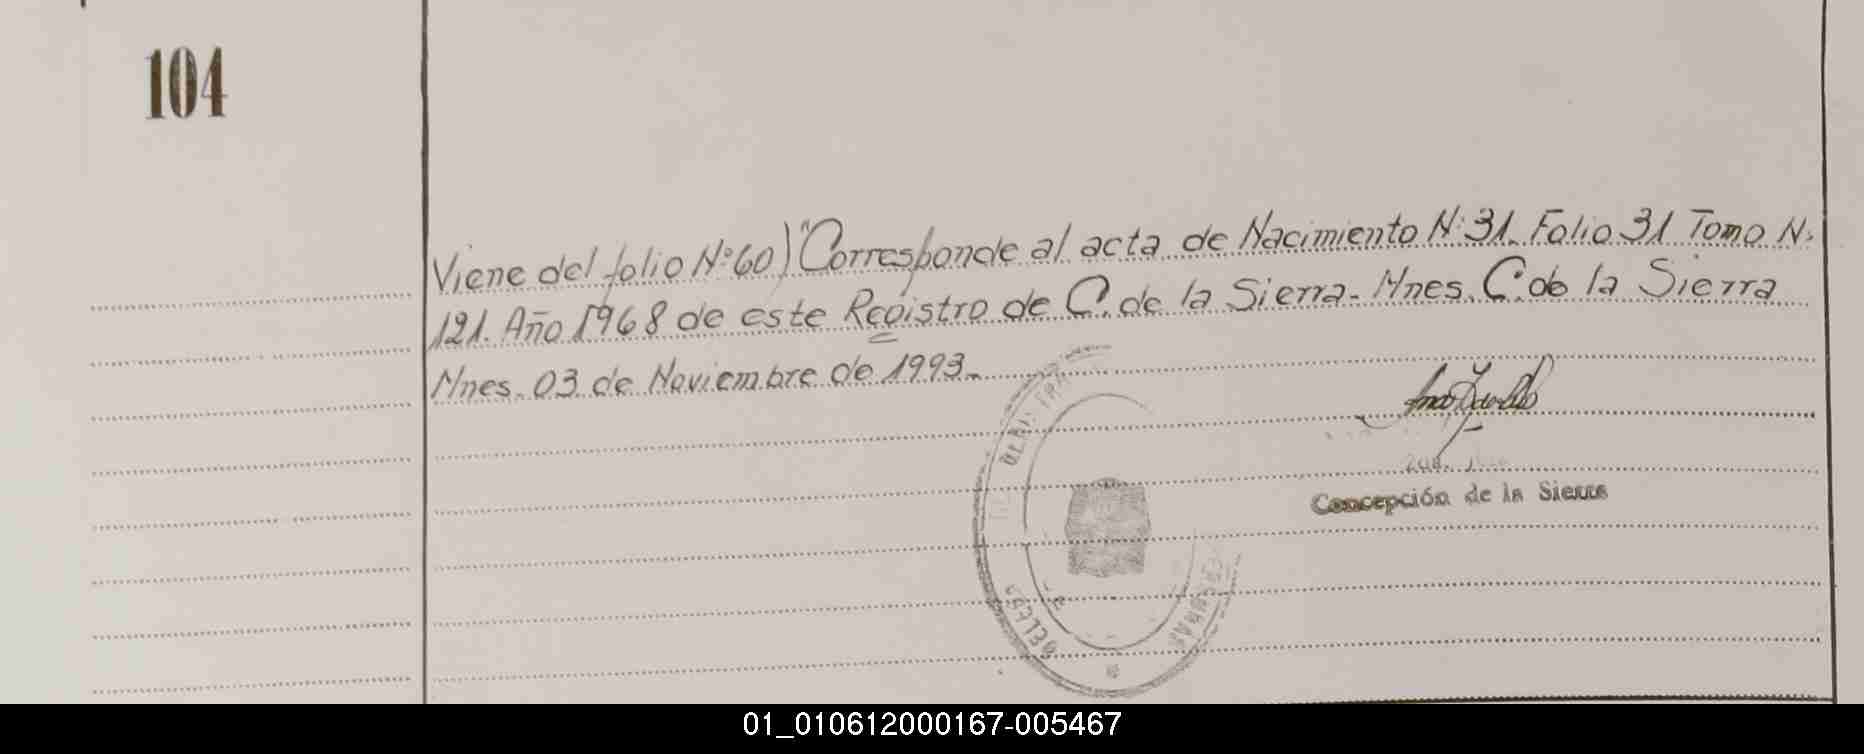 104
Viene del folio N:º 60) "Corresponde al acta de Nacimiento N: 31. Folio 31 Tomo N:
121. Año 1968 de este Registro de C. de la Sierra. Mnes. C. de la Sierra
Mnes. 03 de Noviembre de 1993.
Concepción de la Sierra
01_010612000167-005467